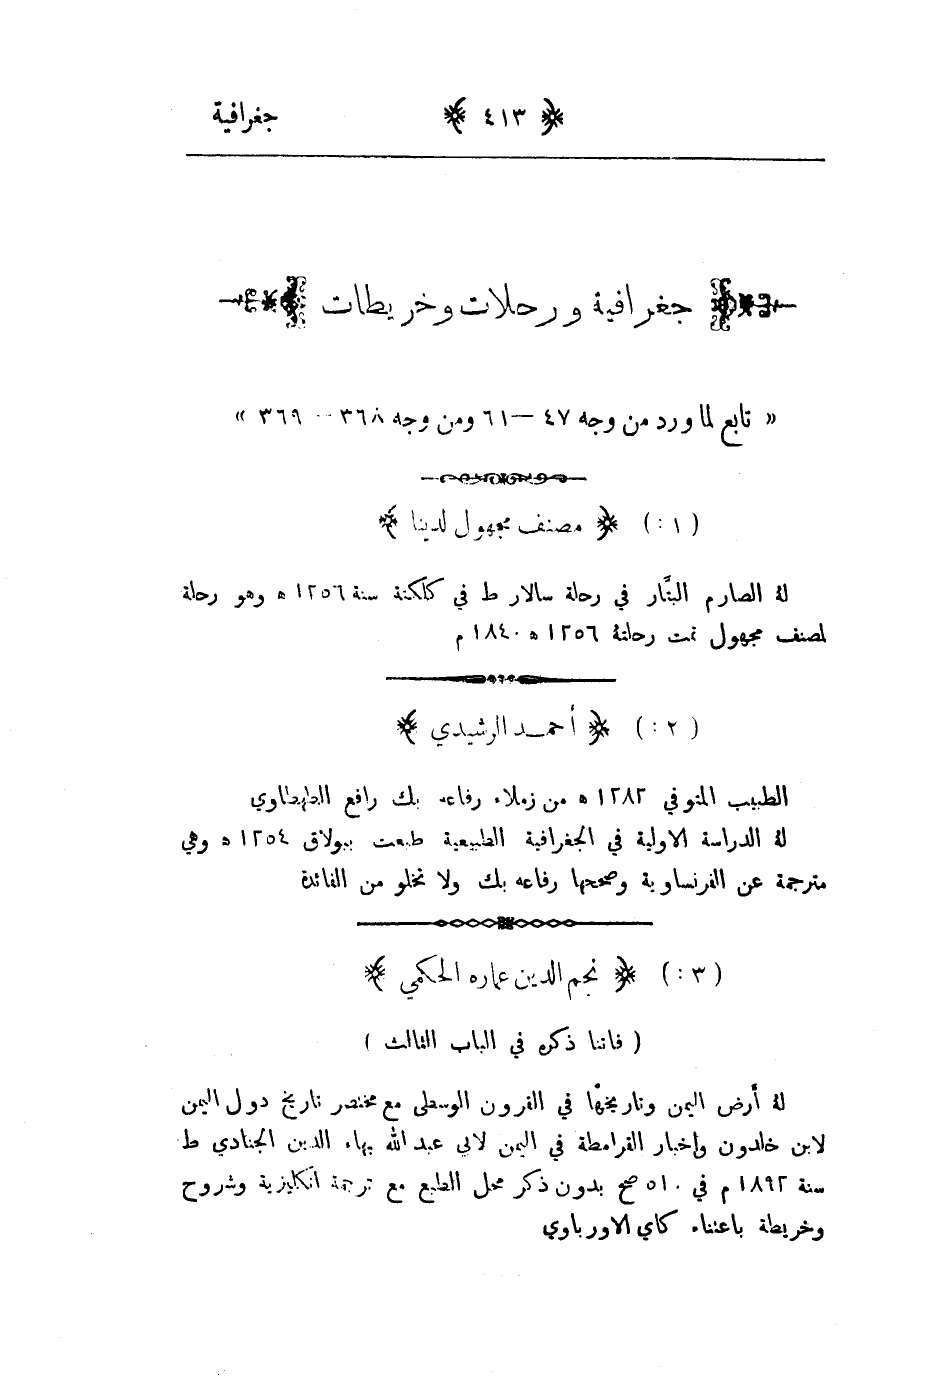 جغرافية ﴿ ٤١٣ ﴾
جغرافية ورحلات وخريطات
« تابع لما ورد من وجه ٤٧ — ٦١ ومن وجه ٣٦٨ — ٣٦٩ »
( ١ : ) ﴿ مصنف مجهول لدينا ﴾
لهُ الصارم البتَّار في رحلة سالار ط في كلكتة سنة ١٢٥٦ ه وهو رحلة
لمصنف مجهول تمت رحلتهُ ١٢٥٦ ه ١٨٤٠ م
( ٢ : ) ﴿ أحمد الرشيدي ﴾
الطبيب المتوفي ١٢٨٢ ه من زملاء رفاعه بك رافع الطهطاوي
لهُ الدراسة الاولية في الجغرافية الطبيعية طبعت ببولاق ١٢٥٤ ه وهي
مترجمة عن الفرنساوية وصححها رفاعه بك ولا تخلو من الفائدة
( ٣ : ) ﴿ نجم الدين عماره الحكمي ﴾
( فاتنا ذكره في الباب الثالث )
لهُ أرض اليمن وتاريخها في القرون الوسطى مع مختصر تاريخ دول اليمن
لابن خلدون واخبار القرامطة في اليمن لابي عبد الله بهاء الدين الجنادي ط
سنة ١٨٩٢ م في ٥١٠ صح بدون ذكر محل الطبع مع ترجمة انكليزية وشروح
وخريطة باعتناء كاي الاورباوي